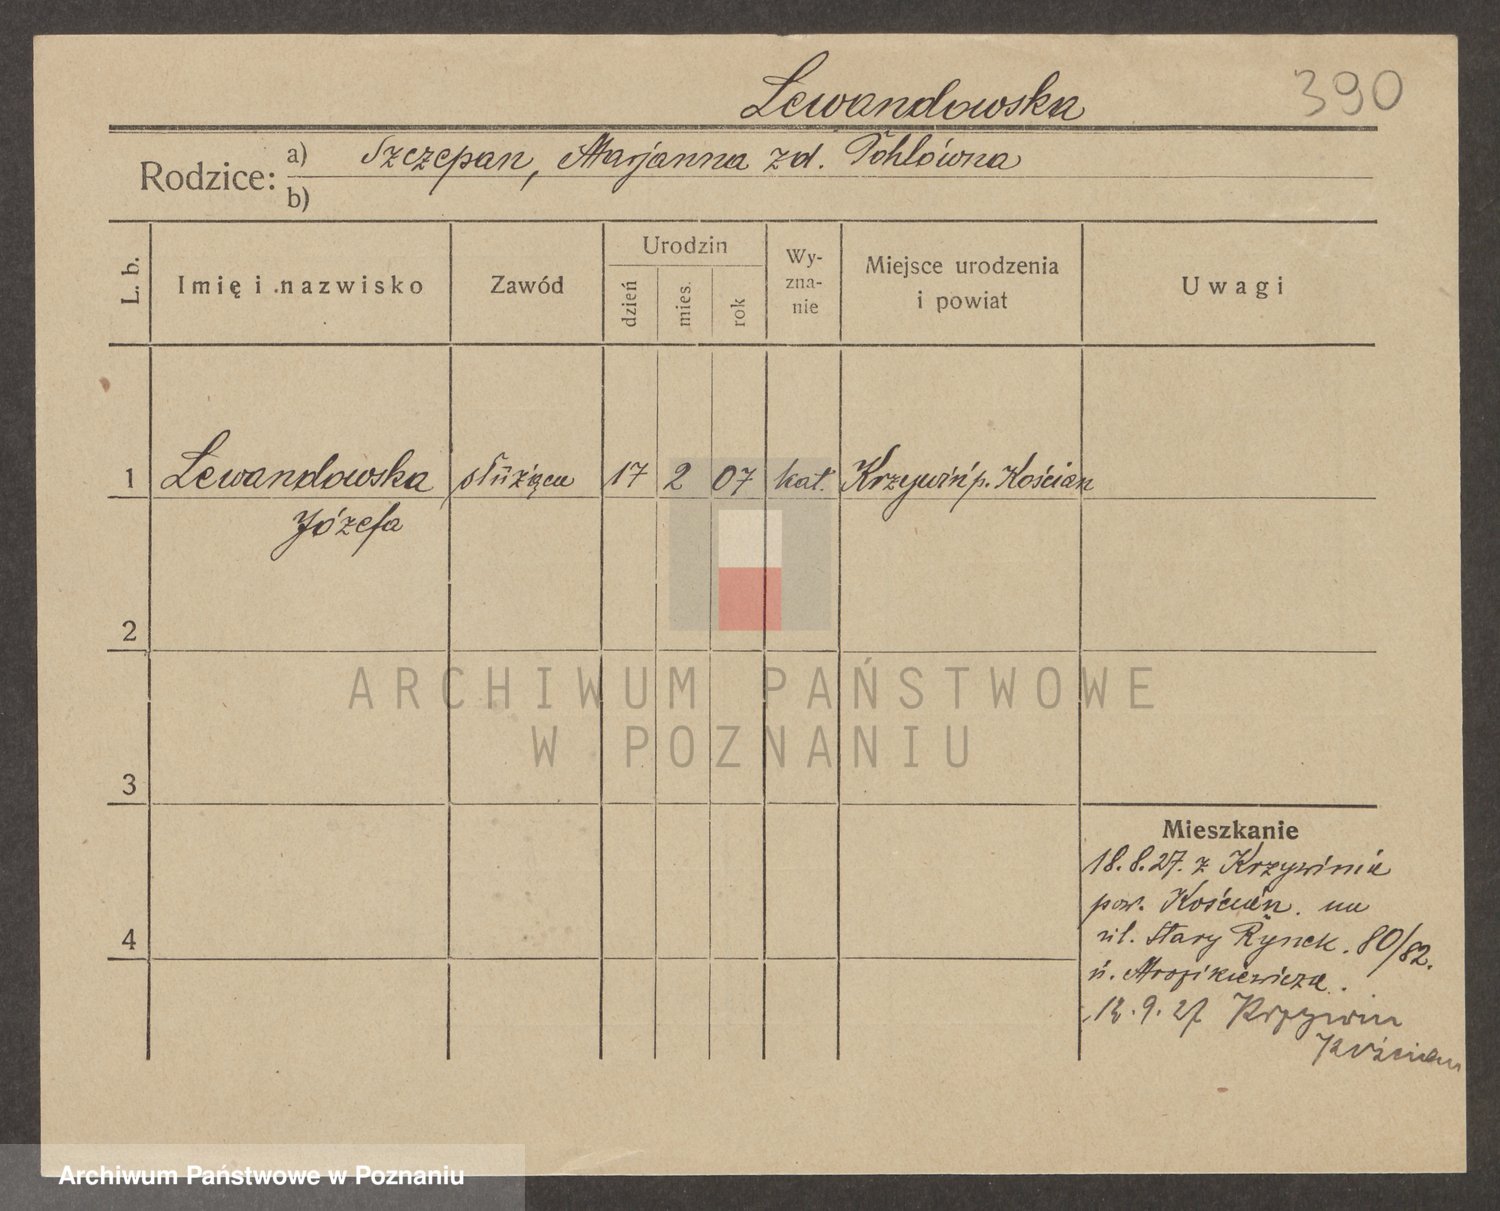 Lewandowska
390
Rodzice:
a) Szczepan, Marjanna zd. Pohlówna
b)
L. b.
Imię i nazwisko
Zawód
Urodzin
dzień
mies.
rok
Wy-
zna-
nie
Miejsce urodzenia
i powiat
Uwagi
1 Lewandowska służąca 17 2 07 kat. Krzywiń p. Kościan
Józefa
2
ARCHIWUM PAŃSTWOWE
W POZNANIU
3
Mieszkanie
18.8.27. z Krzywinia
pow. Kościan. na
4
ul. Stary Rynek. 80/82.
u.
9. 27 Krzywin
Kościan
Archiwum Państwowe w Poznaniu